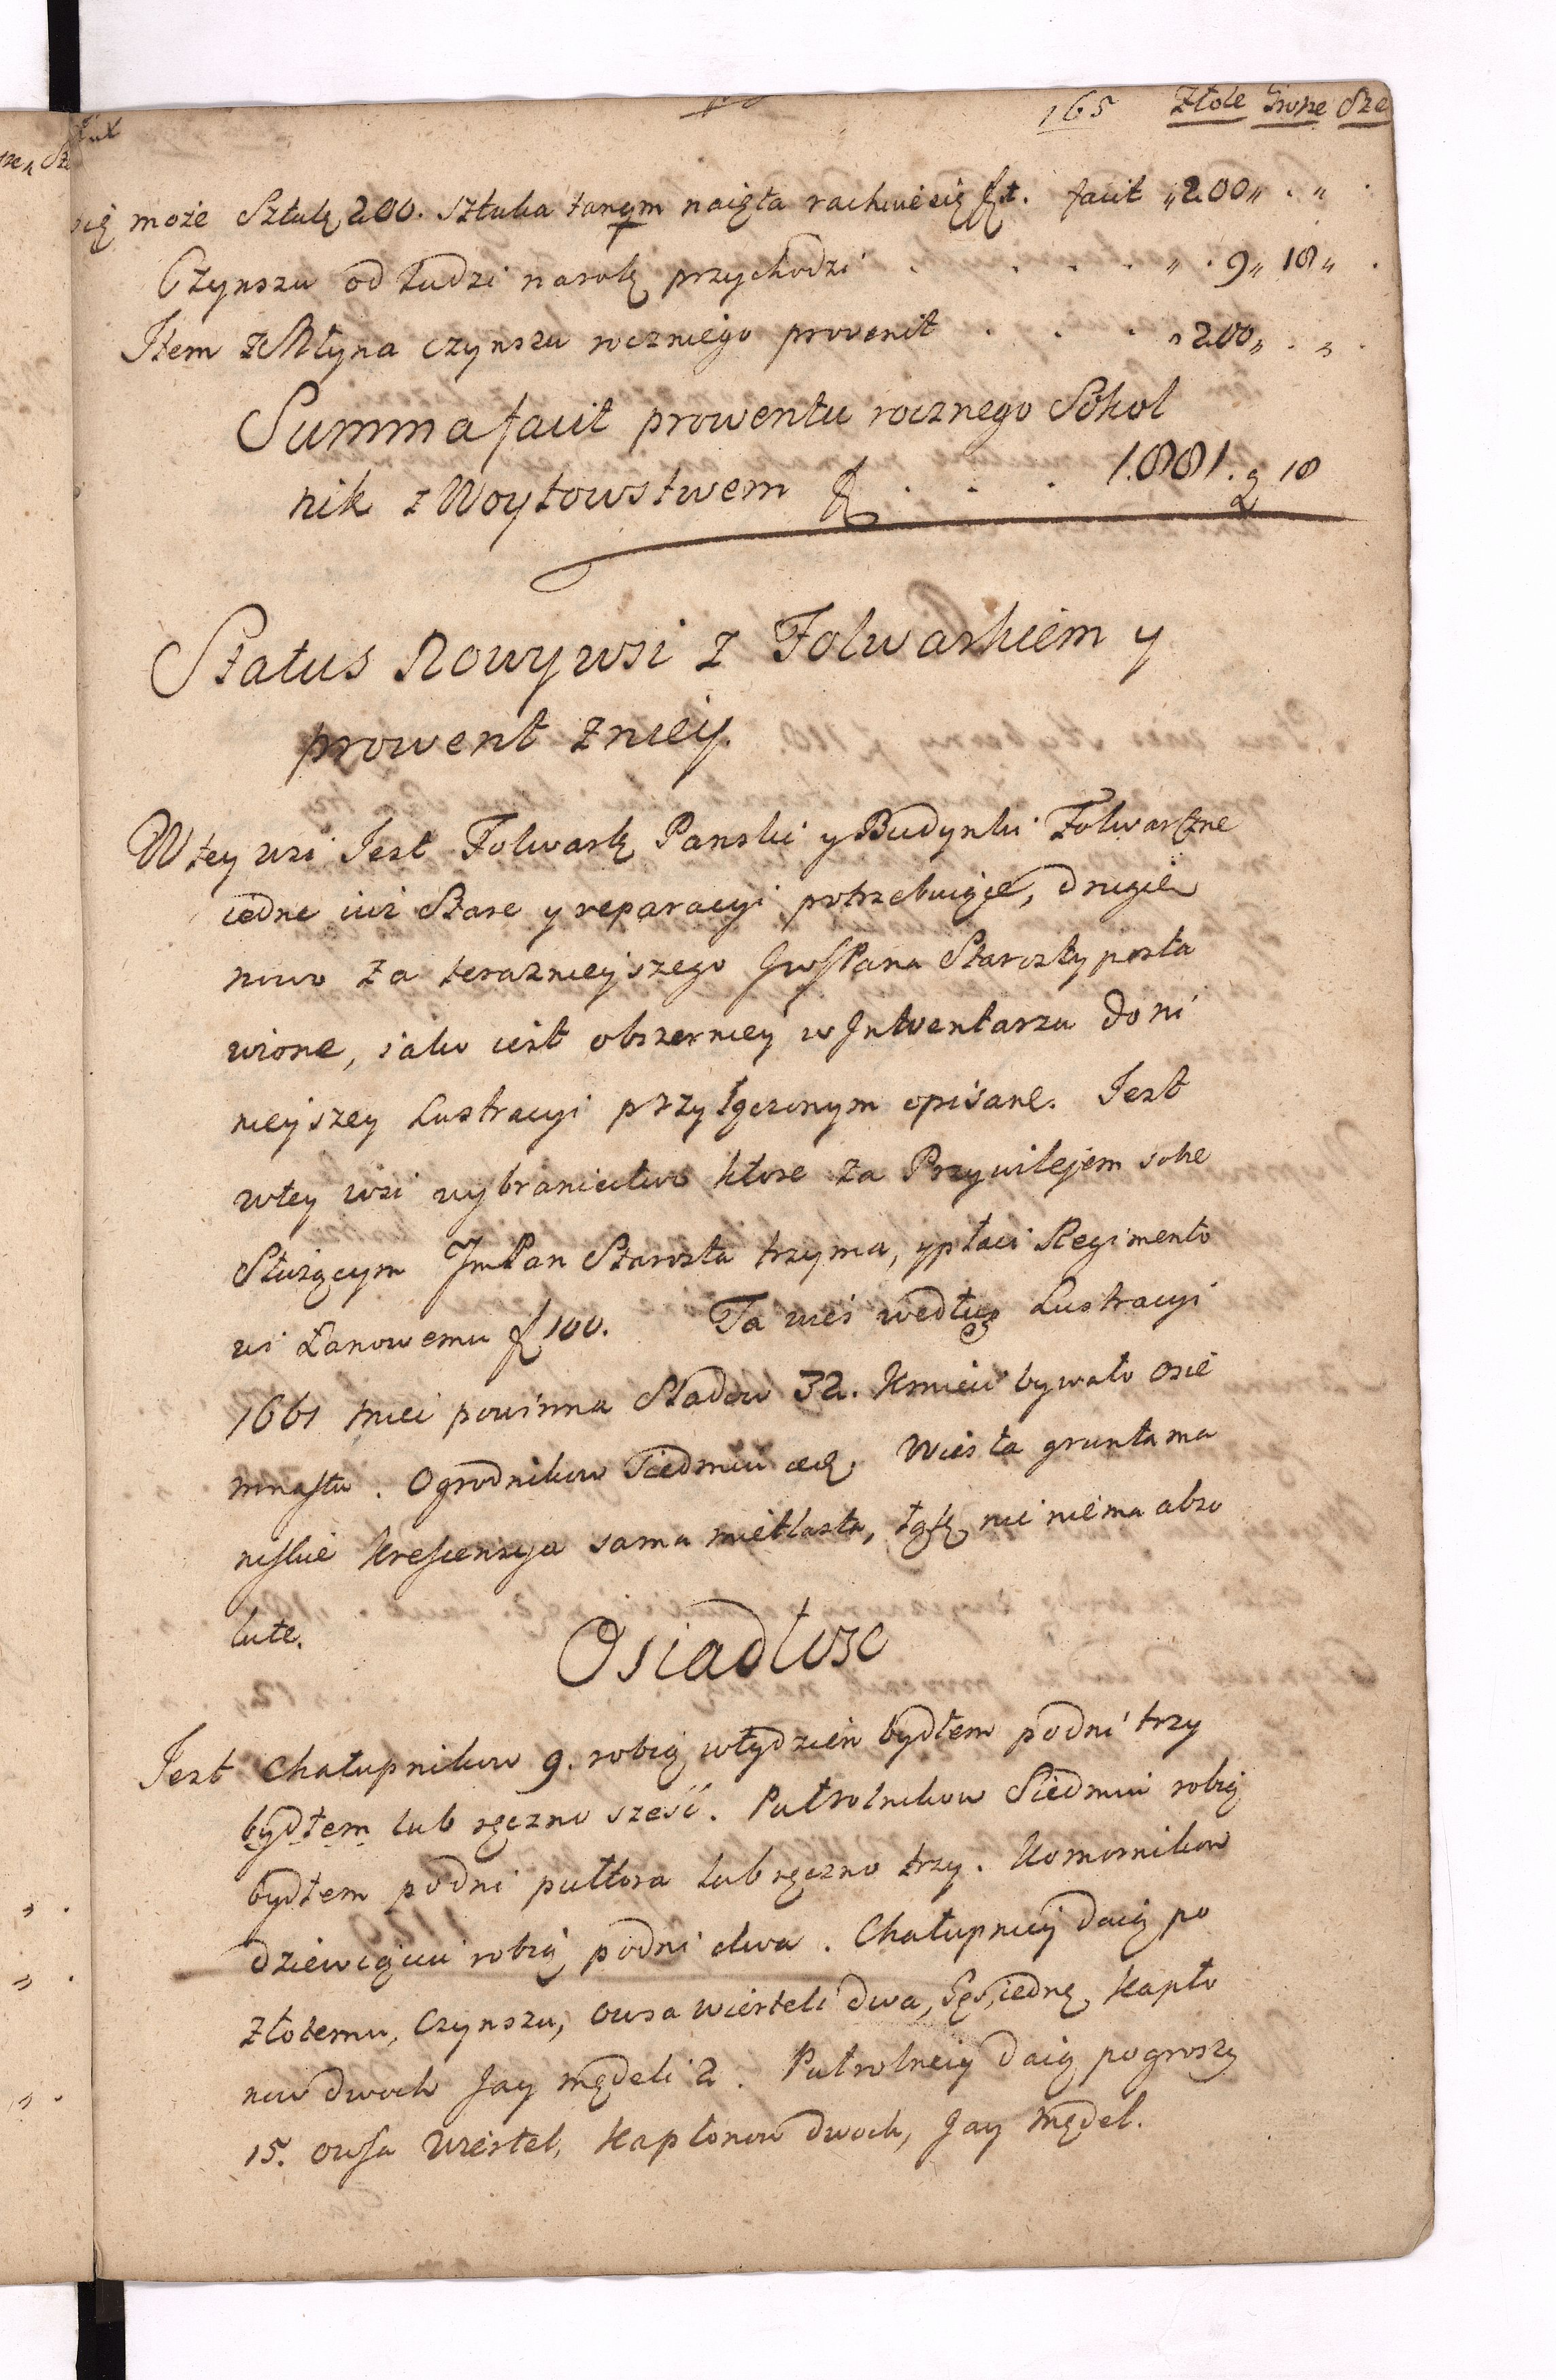 165 Złote Grosze Sze
się może Sztuk 200. sztuka tanqm naięta rachuie się f 1. facit „200„ . „ .
Czynszu od ludzi na rok przychodzi . . . . „ . 9„ 18„ .
Item z Młyna czynszu roczniego provenit . . . „ 200„ . „ .
Summa facit prowentu rocznego Sokol
nik z Woytowstwem f . . . 1.881. g 18
Status Nowywsi z Folwarkiem y
prowent zniey.
W tey wsi Jest Folwark Panski y Budynki Folwarczne
iedne iuż stare y reparacyi potrzebuiące, drugie
nowo za terazniejszego JwPana Starosty posta
wione, iako iest obszerniey w Jnwentarzu do ni
nieyszey Lustracyi przyłączonym opisane. Jest
wtey wsi wybraniectwo ktore za Przywilejem sobie
Służącym JmPan Starosta trzyma, y płaci Regimento
wi Łanowemu f 100. Ta wieś według Lustracyi
1661 miec powinna Sladow 32. Kmieci bywało osie
mnastu. Ogrodnikow Siedmiu etc. Wies ta grunta ma
niskie krescensya sama mietlasta, łąk nic niema abso
lute.
Osiadłosc
Jest Chałupnikow 9. robią w tydzien bydłem podni trzy
bydłem lub ręczno sześć. Pułrolnikow Siedmiu robią
bydłem podni pułtora lub ręczno trzy. Komornikow
dziewięciu robią podni dwa. Chałupnicy daią po
złotemu, Czynszu, owsa wierteli dwa, Gęś iednę, kapło
now dwoch Jay mędeli 2. Pułrolnicy daią pogroszy
15. owsa wiertel, Kapłonow dwoch, Jay mędel.